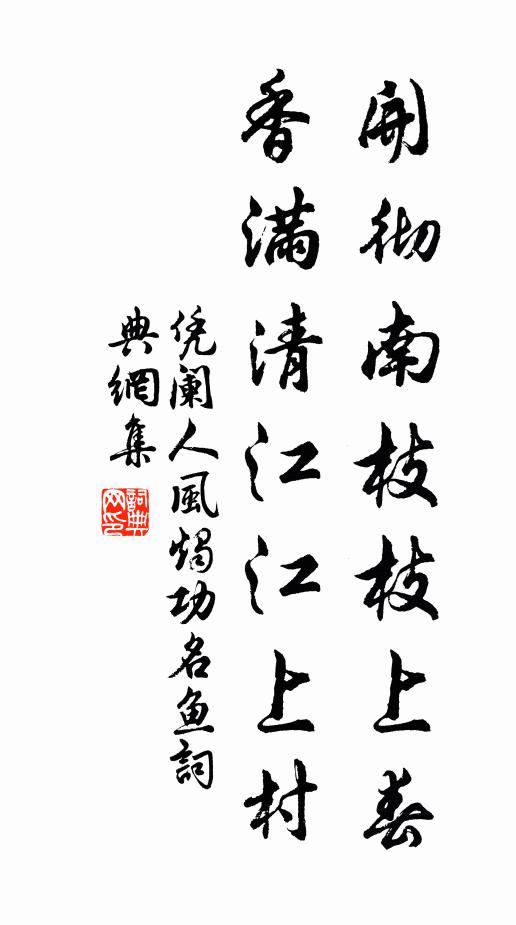 開彻南枝枝上春
香滿清江江上村
凭闌人風燭功名魚詞
典網集
詞典網印